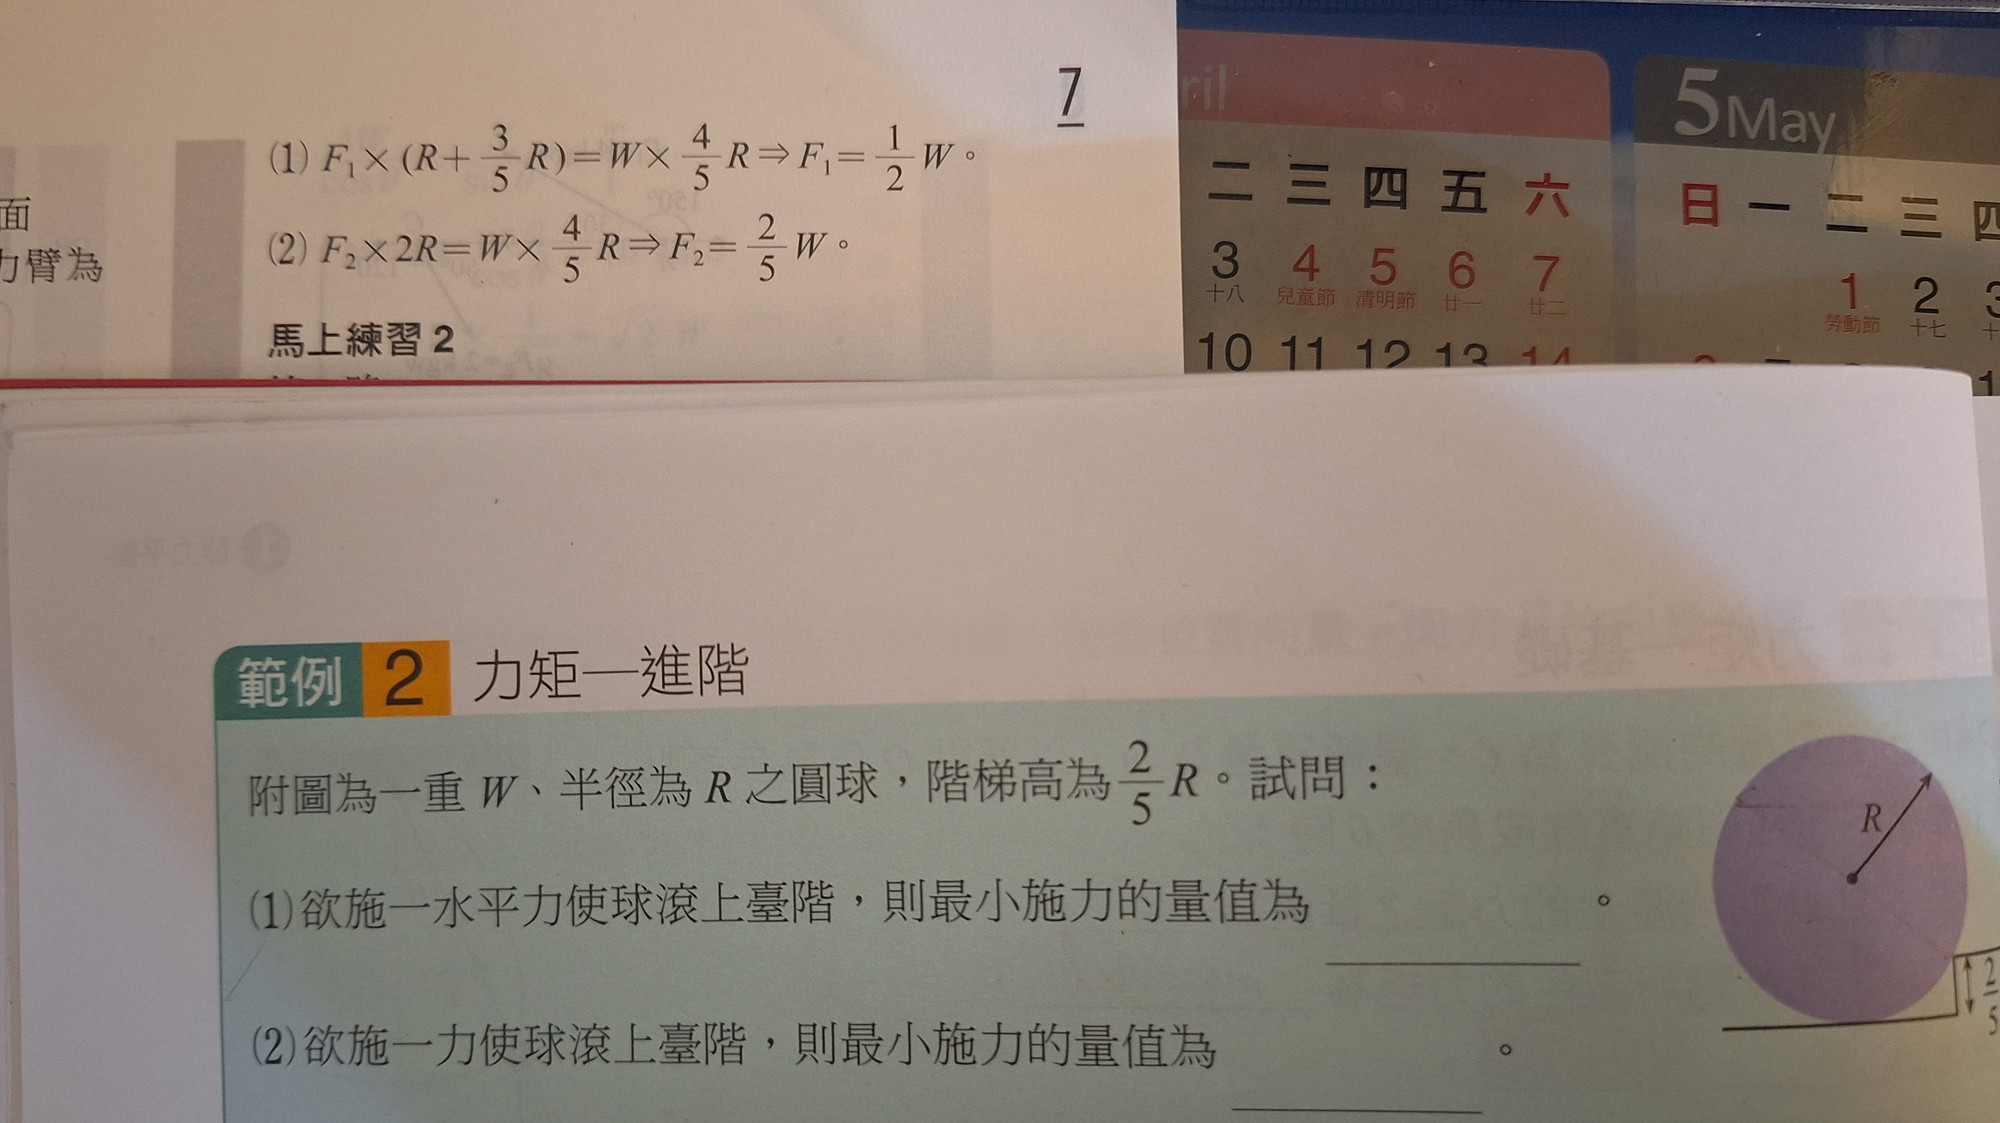 7
(1) F₁×(R+3/5R)=W×4/5R⇒F₁=1/2W。
(2) F₂×2R=W×4/5R⇒F₂=2/5W。
面
力臂為
馬上練習 2
ril
二 三 四 五 六
3 4 5 6 7
十八 兒童節 清明節 廿一 廿二
10 11 12 13 14
5 May
日 一 二 三 四
1 2 3
勞動節 十七
範例 2 力矩—進階
附圖為一重 W、半徑為 R 之圓球，階梯高為2/5R。試問：
(1)欲施一水平力使球滾上臺階，則最小施力的量值為 ＿＿＿＿。
(2)欲施一力使球滾上臺階，則最小施力的量值為 ＿＿＿＿。
R
2/5